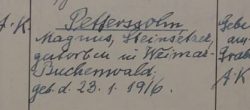 A.K.
Petterssohn
Magnus, Steinsetzer,
gestorben in Weimar-
Buchenwald,
geb. d. 23.1.1916.
A.K.